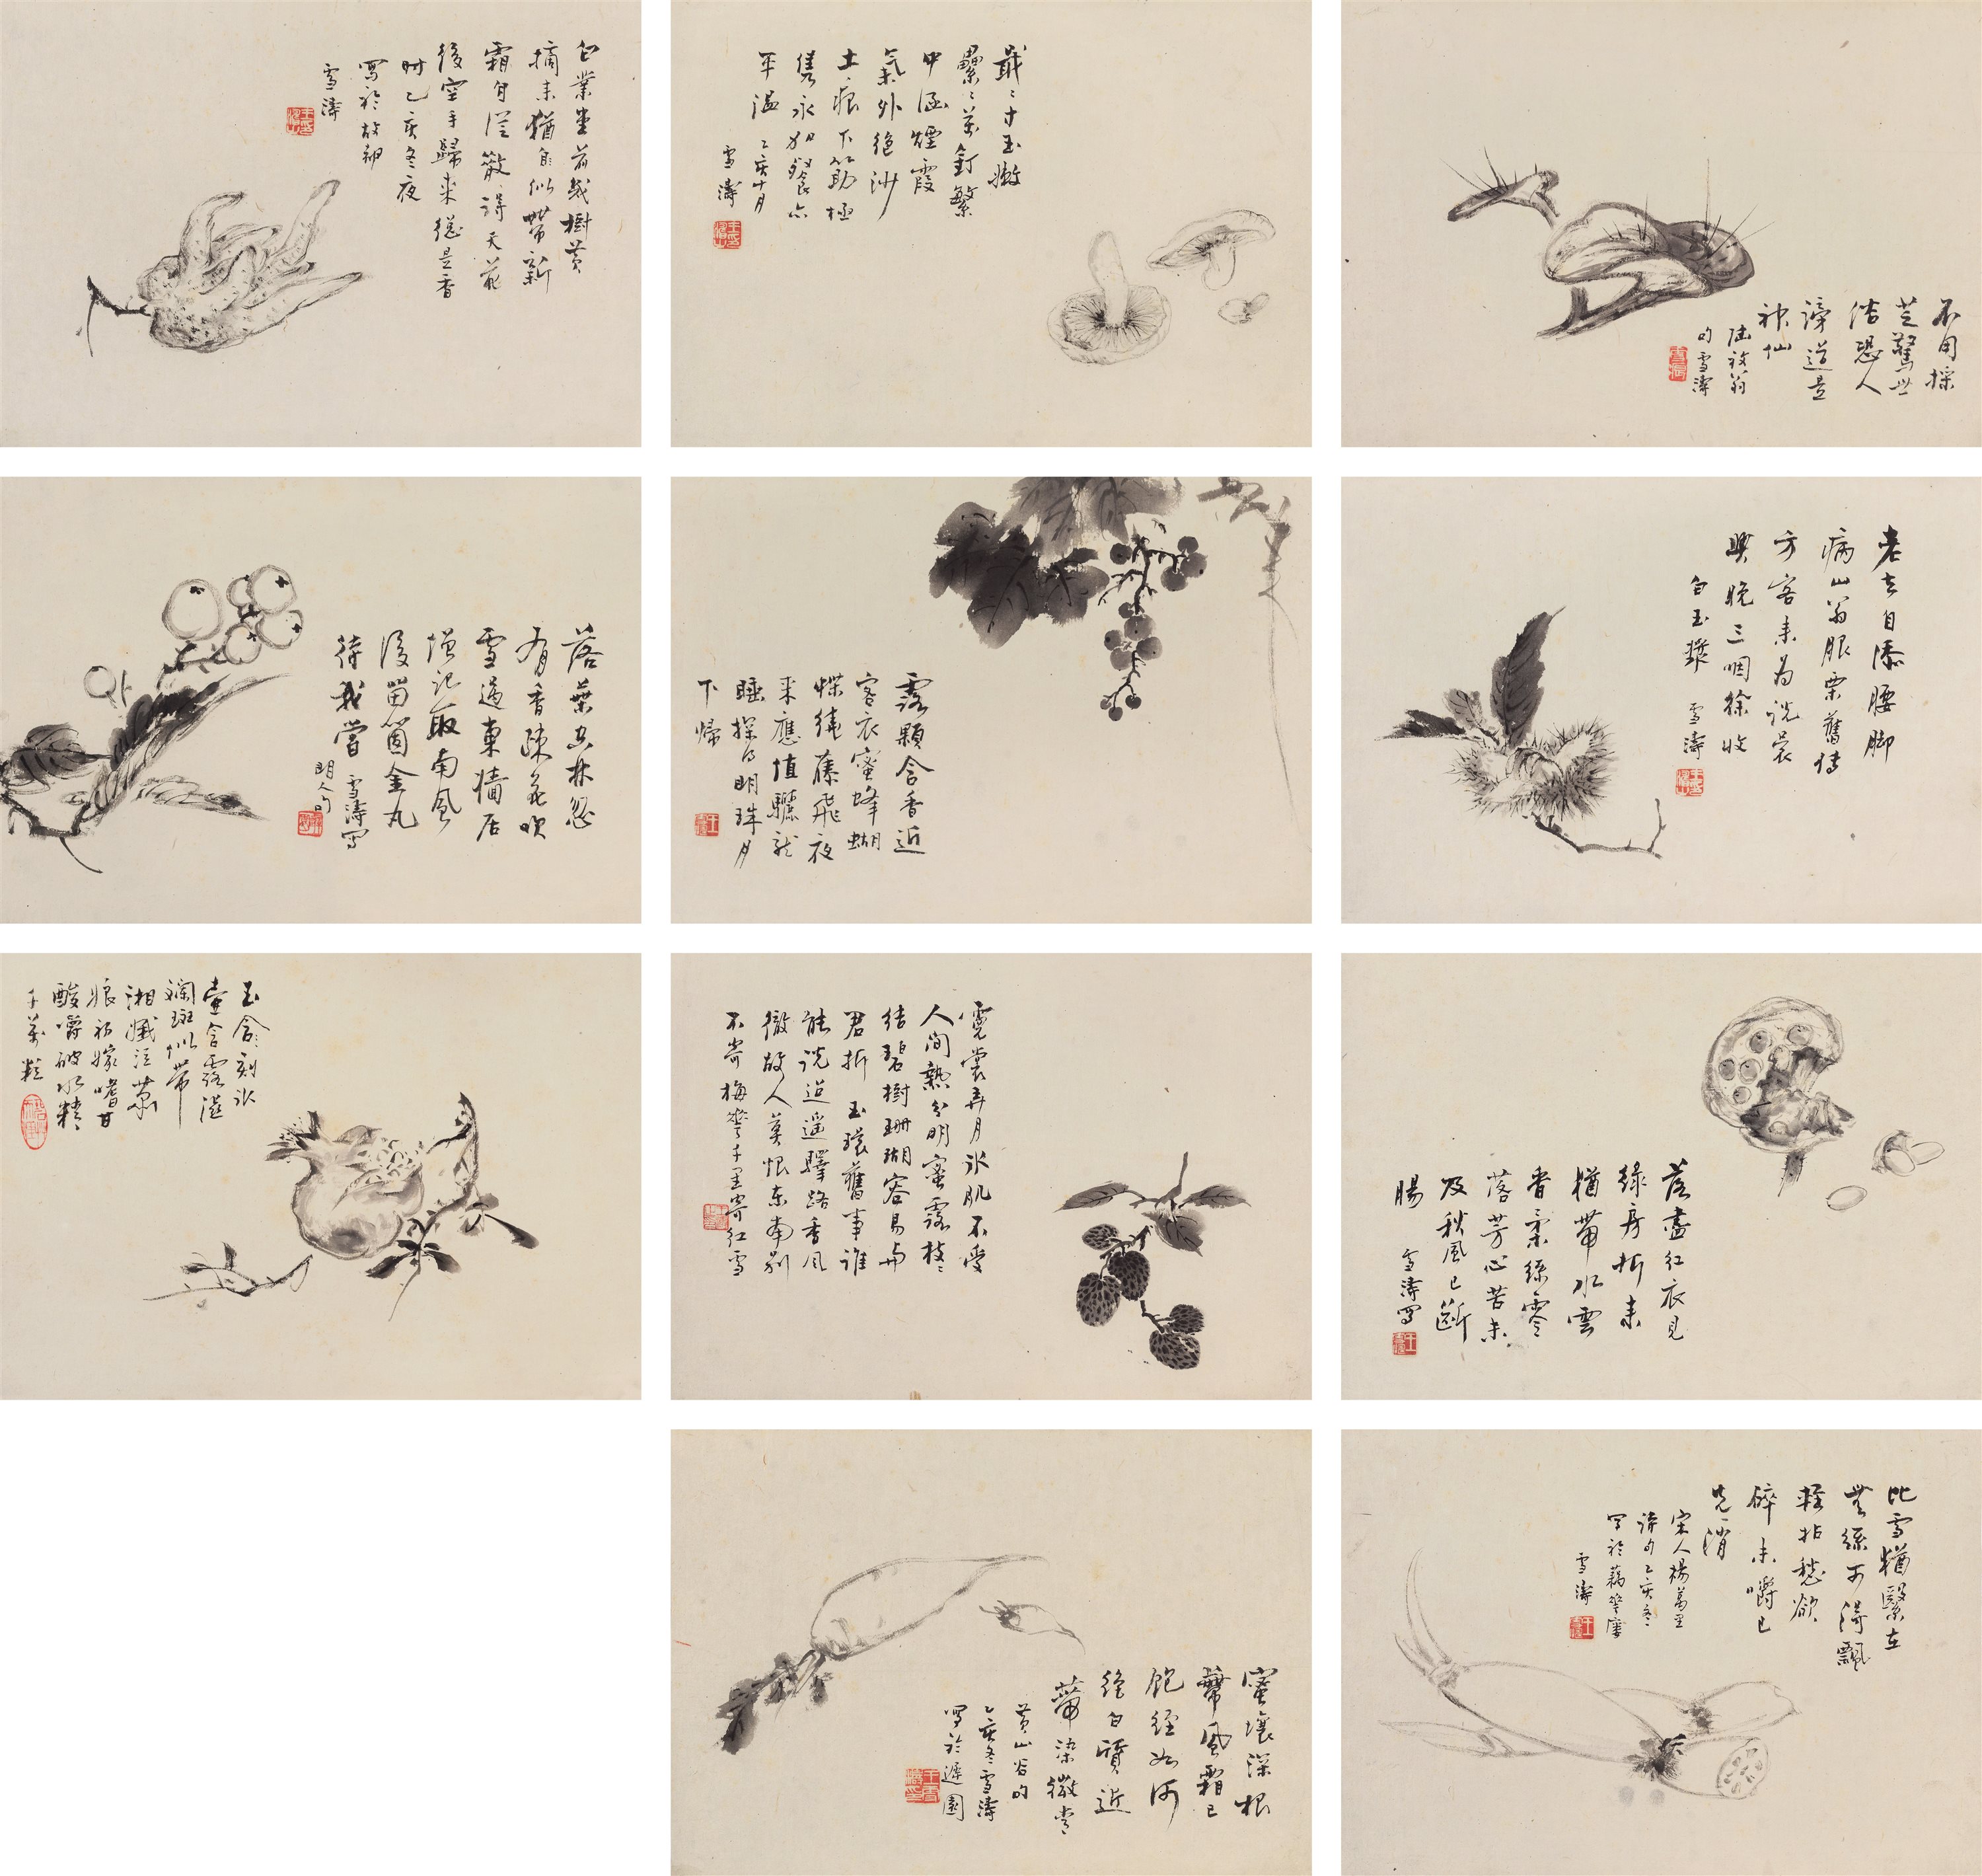 不用採
芝驚世
俗恐人
謗道是
神仙
陸放翁
句雪濤
戢〻寸玉嫩
纍〻萬釘繁
中涵煙霞
氣外絕沙
土痕下筯極
雋永加餐亦
平溫 乙亥十月
雪濤
白業堂前幾樹黃
摘來猶自似帶新
霜自從散得天花
後空手歸來總是香
時乙亥冬夜
寫於故都
雪濤
老去自添腰腳
病山翁服栗舊傳
方客來為說晨
興晚三咽徐收
白玉漿 雪濤
露顆含香近
客衣蜜蜂蝴
蝶繞藤飛夜
來應值驪龍
睡探得明珠月
下歸
落葉空林忽
有香疎花吹
雪過東牆居
僧記取南風
後留箇金丸
待我嘗 雪濤寫
明人句
落盡紅衣見
綠房折來
猶帶水雲
香柔絲零
落芳心苦未
及秋風已斷
腸
雪濤寫
霓裳弄月冰肌不受
人間熱分明蜜露枝〻
結碧樹珊瑚容易与
君折 玉環舊事誰
能說迢遙驛路香風
徹故人莫恨東南別
不寄梅華千里寄紅雪
玉含刻冰
壺含露溼
斕斑似帶
湘孃泣蕭
娘初嫁嗜甘
酸嚼破水精
千萬粒
比雪猶緊在
無絲可得飄
輕拈愁欲
碎未嚼已
先消
宋人楊萬里
詩句乙亥冬
寫於藕華廔
雪濤
蜜壤深根
蒂風霜已
飽經如何
純白質近
蒂染微青
黃山谷句
乙亥冬雪濤
寫於遲園